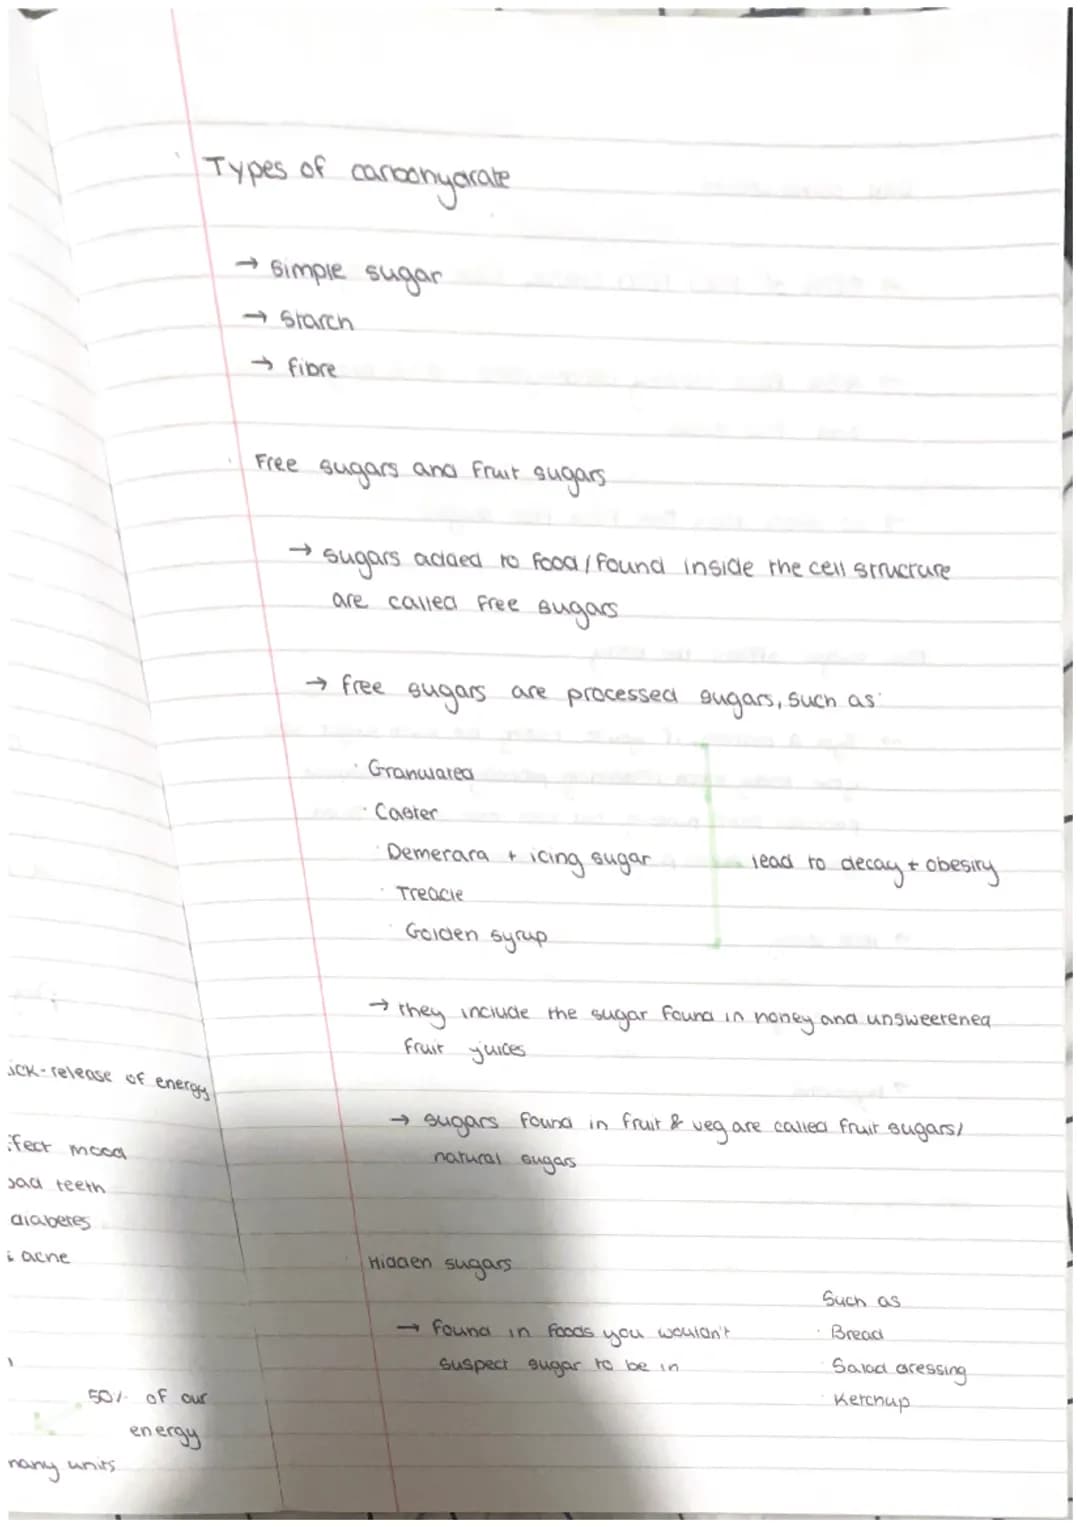 Types of carbohydrate
→ simple sugar
→ starch
→ fibre
Free sugars and fruit sugars
→ sugars added to food/found inside the cell structure
are called free sugars
→ free sugars are processed sugars, such as:
· Granulated
· Caster
· Demerara + icing sugar
lead to decay + obesity
· Treacle
· Golden syrup
→ they include the sugar found in honey and unsweetened
fruit juices
→ sugars found in fruit & veg are called fruit sugars/
natural sugars
Hidden sugars
→ found in foods you wouldn't
suspect sugar to be in
Such as
· Bread
· Salad dressing
· Ketchup
ick-release of energy
fect mood
bad teeth
diabetes
acne
50% of our
energy
many units